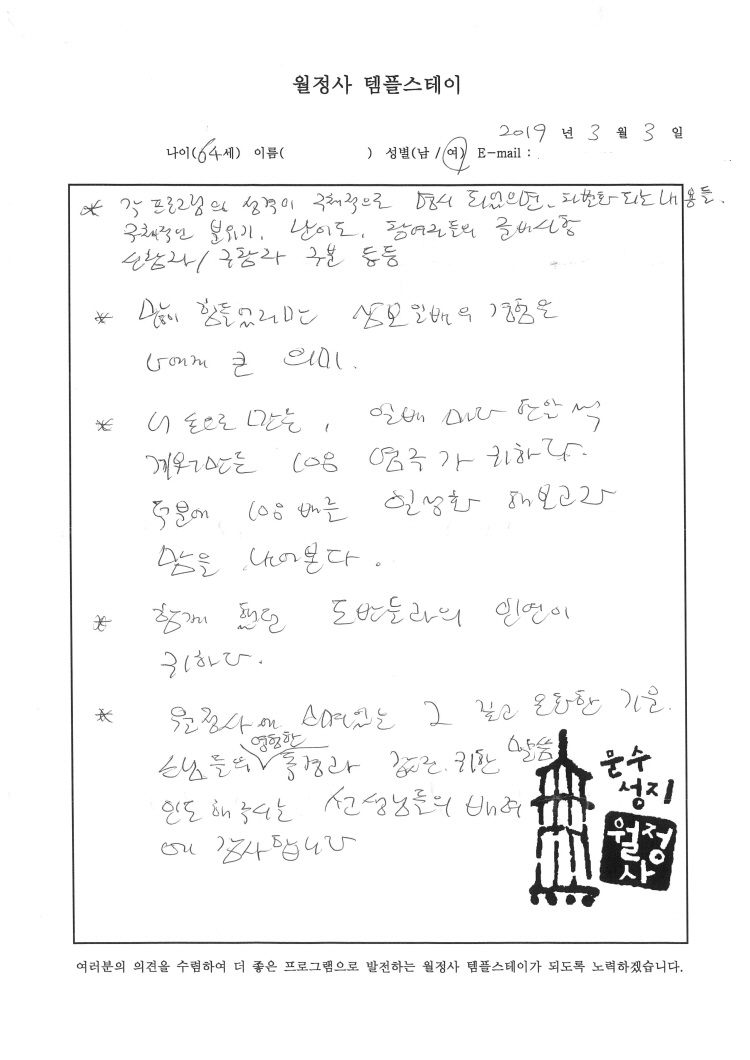 월정사 템플스테이
2019 년 3 월 3 일
나이(64세) 이름( ) 성별(남 / 여) E-mail :
* 각 프로그램의 성격이 구체적으로 명시 되었으면. 차별화 되는 내용들.
구체적인 분위기, 난이도, 참여자들의 준비사항
신참자/구참자 구분 등등
* 많이 힘들었지만 삼보일배의 경험은
나에게 큰 의미.
* 내 손으로 만든, 일배 마다 한알 씩
꿰우며 만든 108 염주가 귀하다.
덕분에 108배를 일상화 해보고자
맘을 내어본다.
* 함께 했던 도반들과의 인연이
귀하다.
* 월정사에 스며있는 그 깊고 온화한 기운.
스님들의 영험한 독경과 귀한 말씀
인도해주시는 선생님들의 배려
에 감사합니다
문수
성지
월정
사
여러분의 의견을 수렴하여 더 좋은 프로그램으로 발전하는 월정사 템플스테이가 되도록 노력하겠습니다.